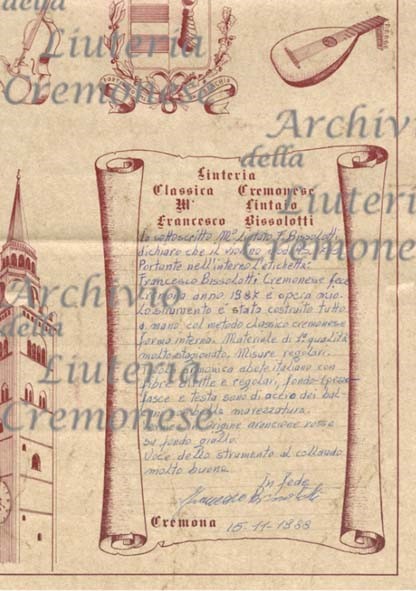 della
Liuteria
Cremonese
Archivio
della
Liuteria
Cremonese
Liuteria
Classica Cremonese
Mº Liutaio
Francesco Bissolotti
Io sottoscritto Mº Liutaio F. Bissolotti
dichiaro che il violino
Portante nell'interno l'etichetta:
Francesco Bissolotti Cremonese fece
anno 1987 è opera mia.
Lo strumento è stato costruito tutto
a mano col metodo classico cremonese
forma interna. Materiale di 1ª qualità
molto stagionato. Misure regolari.
armonica abete italiano con
fibre diritte e regolari, fondo
fasce e testa sono di acero dei bal-
marezzatura.
arancione rosso
su fondo giallo.
Voce dello strumento al collaudo
molto buona.
In fede
Francesco Bissolotti
Cremona 15-11-1988
Archivio
della
Liuteria
Cremonese